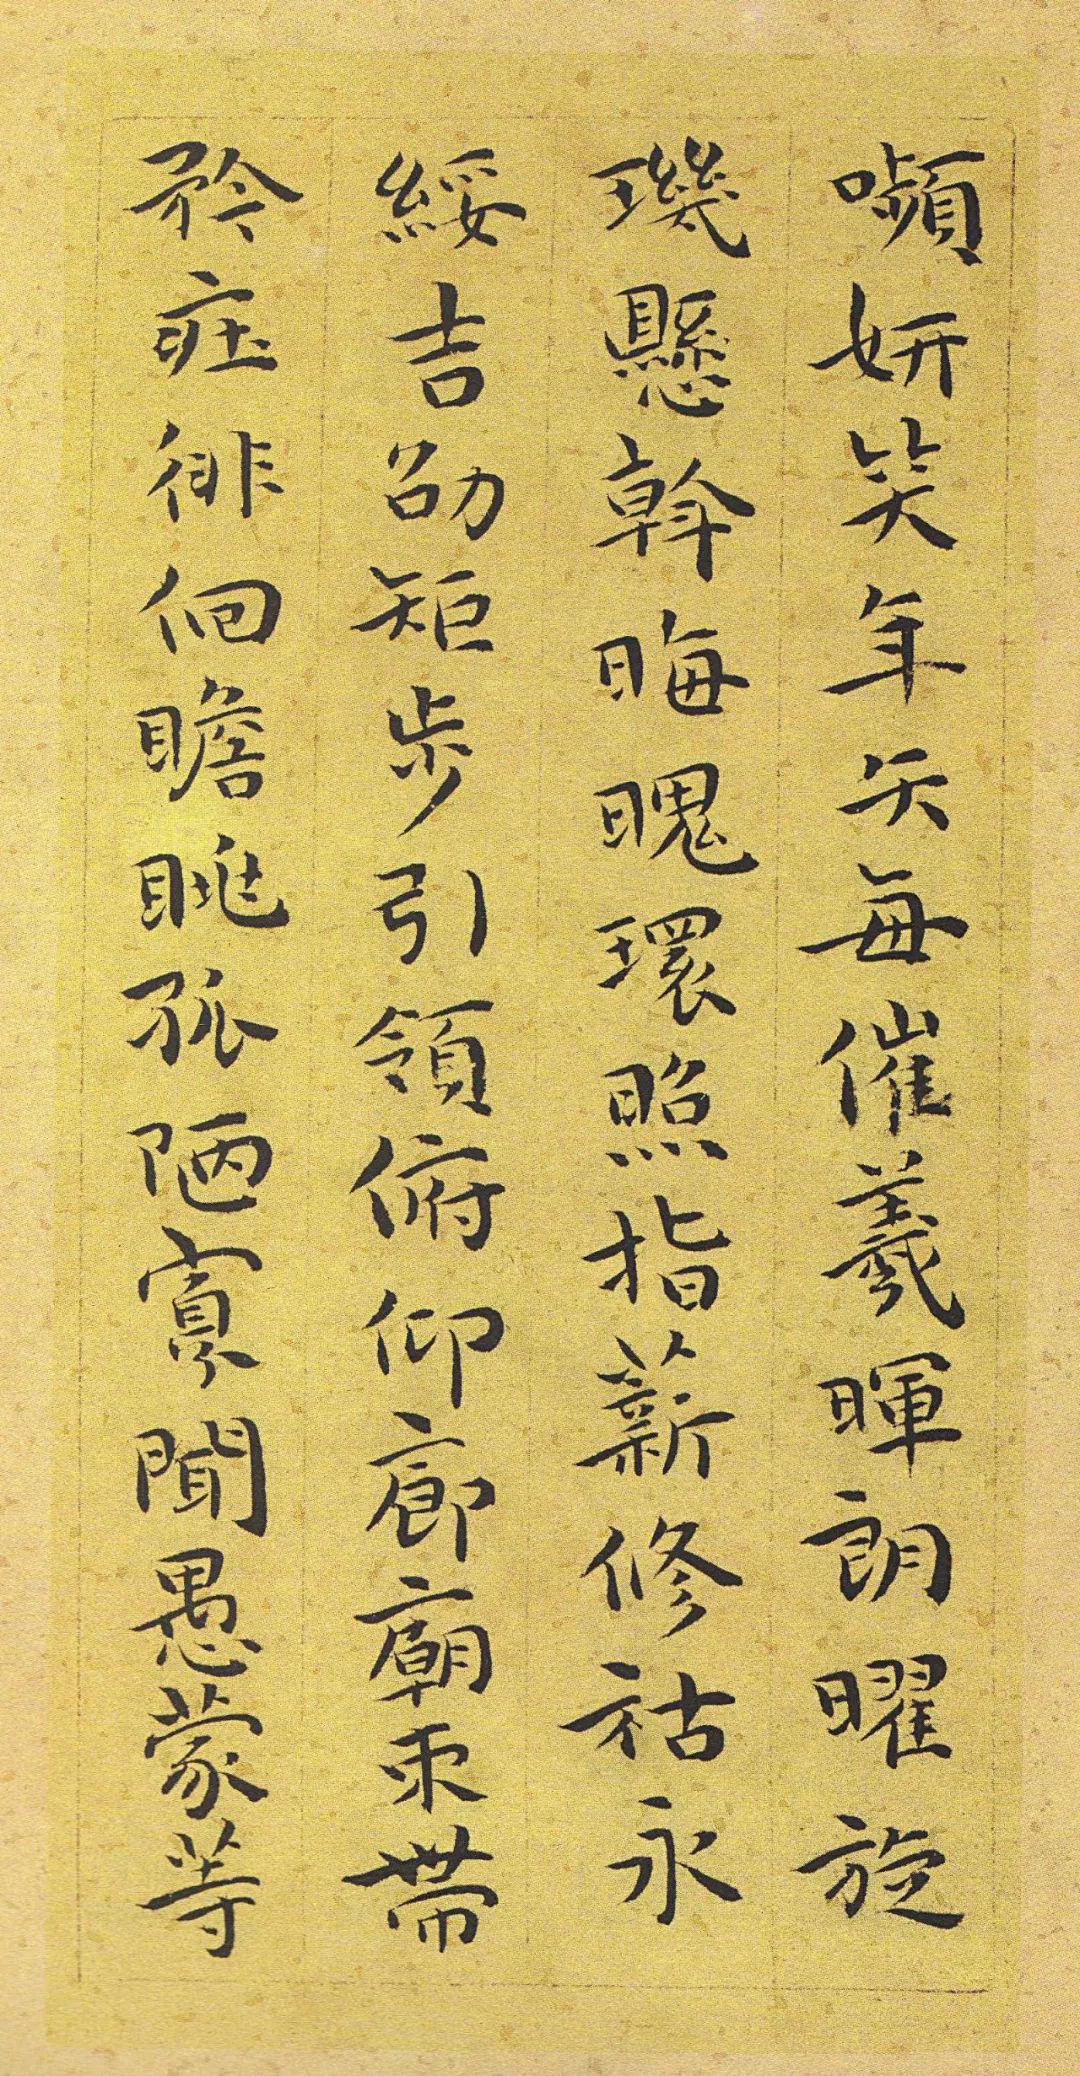 嚬妍笑年矢每催羲暉朗曜旋
璣懸斡晦魄環照指薪修祜永
綏吉劭矩步引領俯仰廊廟束帶
矜莊徘徊瞻眺孤陋寡聞愚蒙等